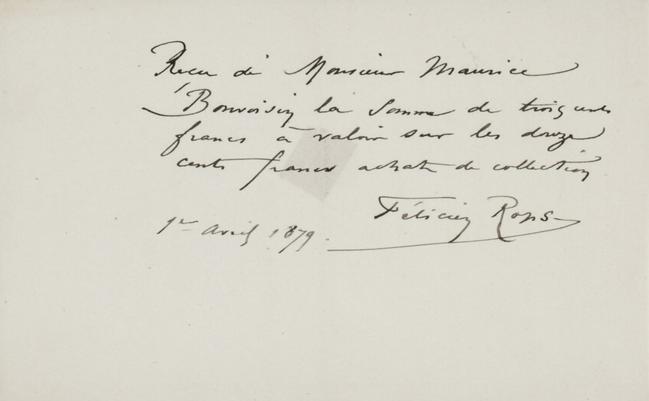 Reçu de Monsieur Maurice
Bonvoisin la somme de trois cents
francs à valoir sur les douze
cents francs achat de collection
Félicien Rops
1er Avril 1879.